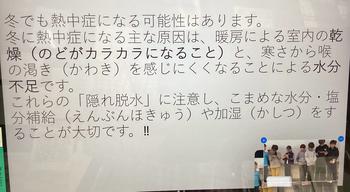 冬でも熱中症になる可能性はあります。
冬に熱中症になる主な原因は、暖房による室内の乾
燥（のどがカラカラになること）と、寒さから喉
の渇き（かわき）を感じにくくなることによる水分
不足です。
これらの「隠れ脱水」に注意し、こまめな水分・塩
分補給（えんぶんほきゅう）や加湿（かしつ）をす
ることが大切です。‼